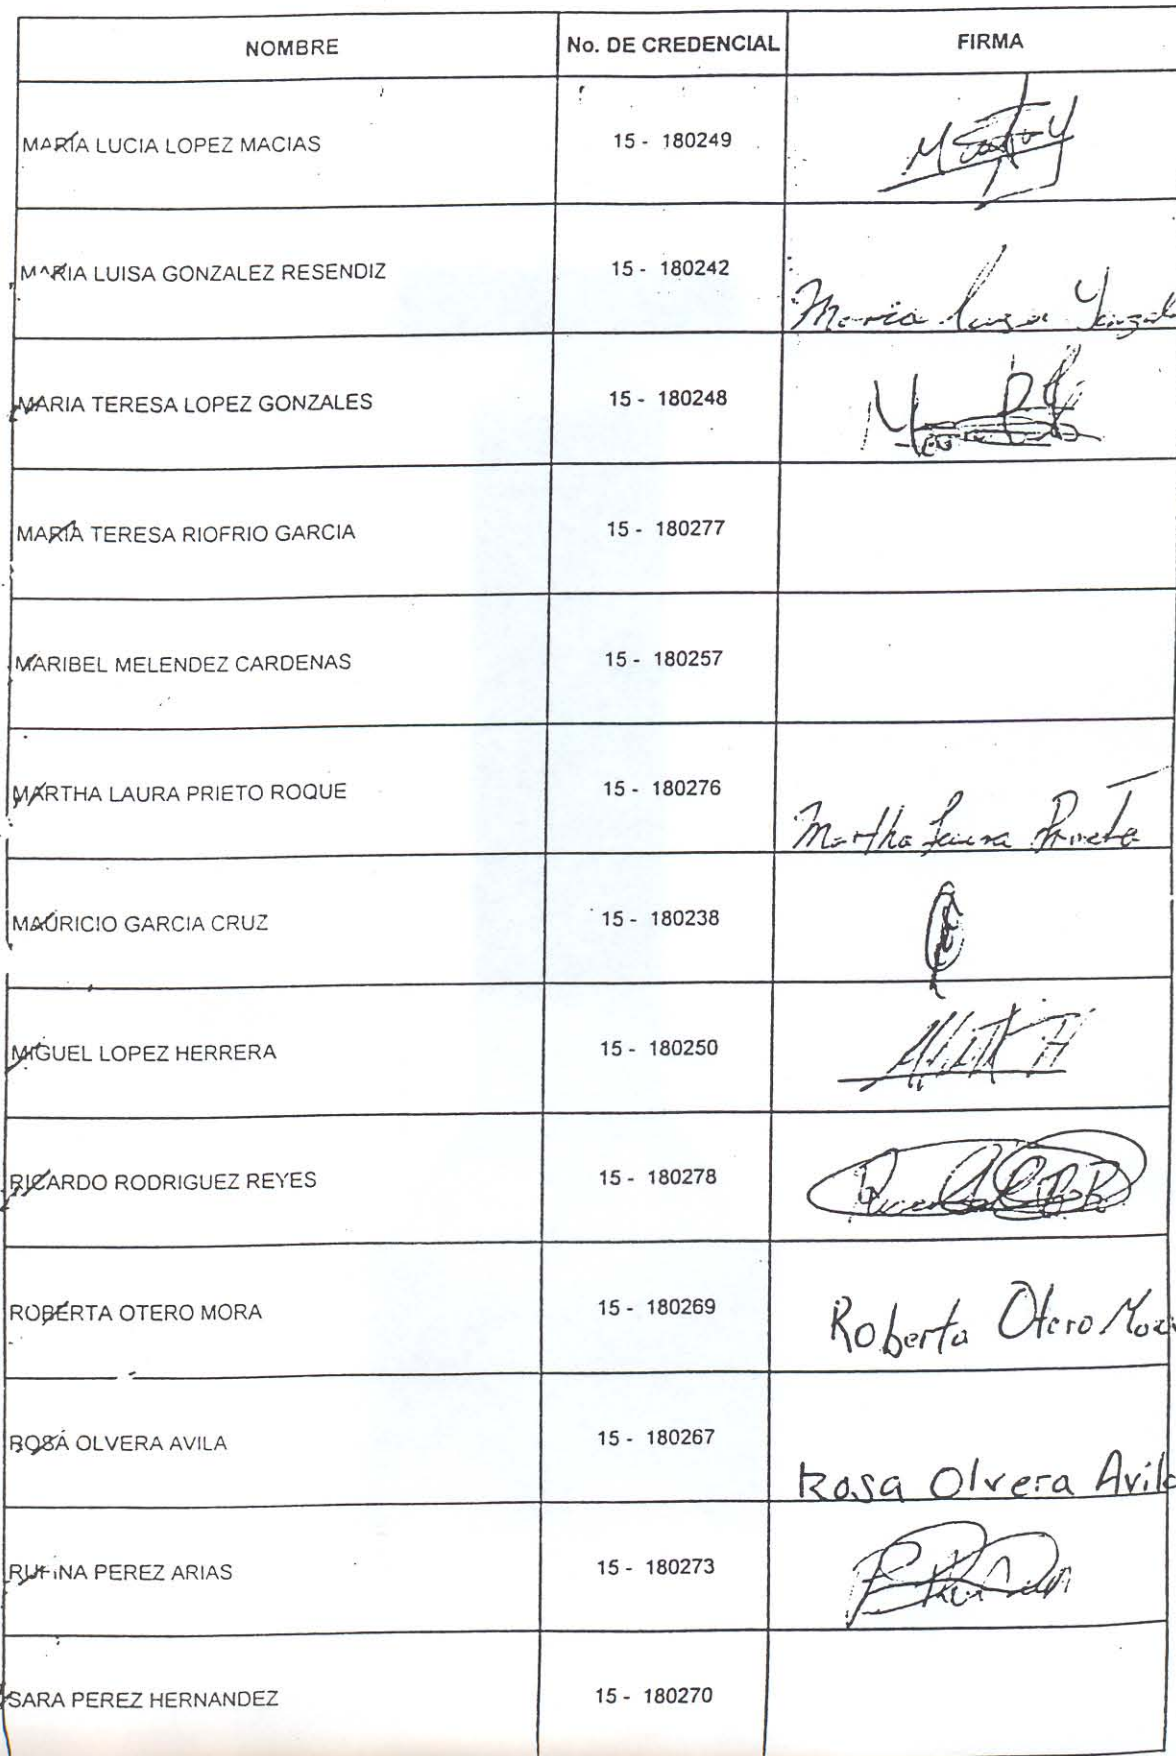 NOMBRE No. DE CREDENCIAL FIRMA
MARIA LUCIA LOPEZ MACIAS 15 - 180249
MARIA LUISA GONZALEZ RESENDIZ 15 - 180242 Maria Luisa
MARIA TERESA LOPEZ GONZALES 15 - 180248
MARIA TERESA RIOFRIO GARCIA 15 - 180277
MARIBEL MELENDEZ CARDENAS 15 - 180257
MARTHA LAURA PRIETO ROQUE 15 - 180276 Martha Laura Prieto
MAURICIO GARCIA CRUZ 15 - 180238
MIGUEL LOPEZ HERRERA 15 - 180250
RICARDO RODRIGUEZ REYES 15 - 180278
ROBERTA OTERO MORA 15 - 180269 Roberta Otero
ROSA OLVERA AVILA 15 - 180267 Rosa Olvera Avila
RUFINA PEREZ ARIAS 15 - 180273
SARA PEREZ HERNANDEZ 15 - 180270